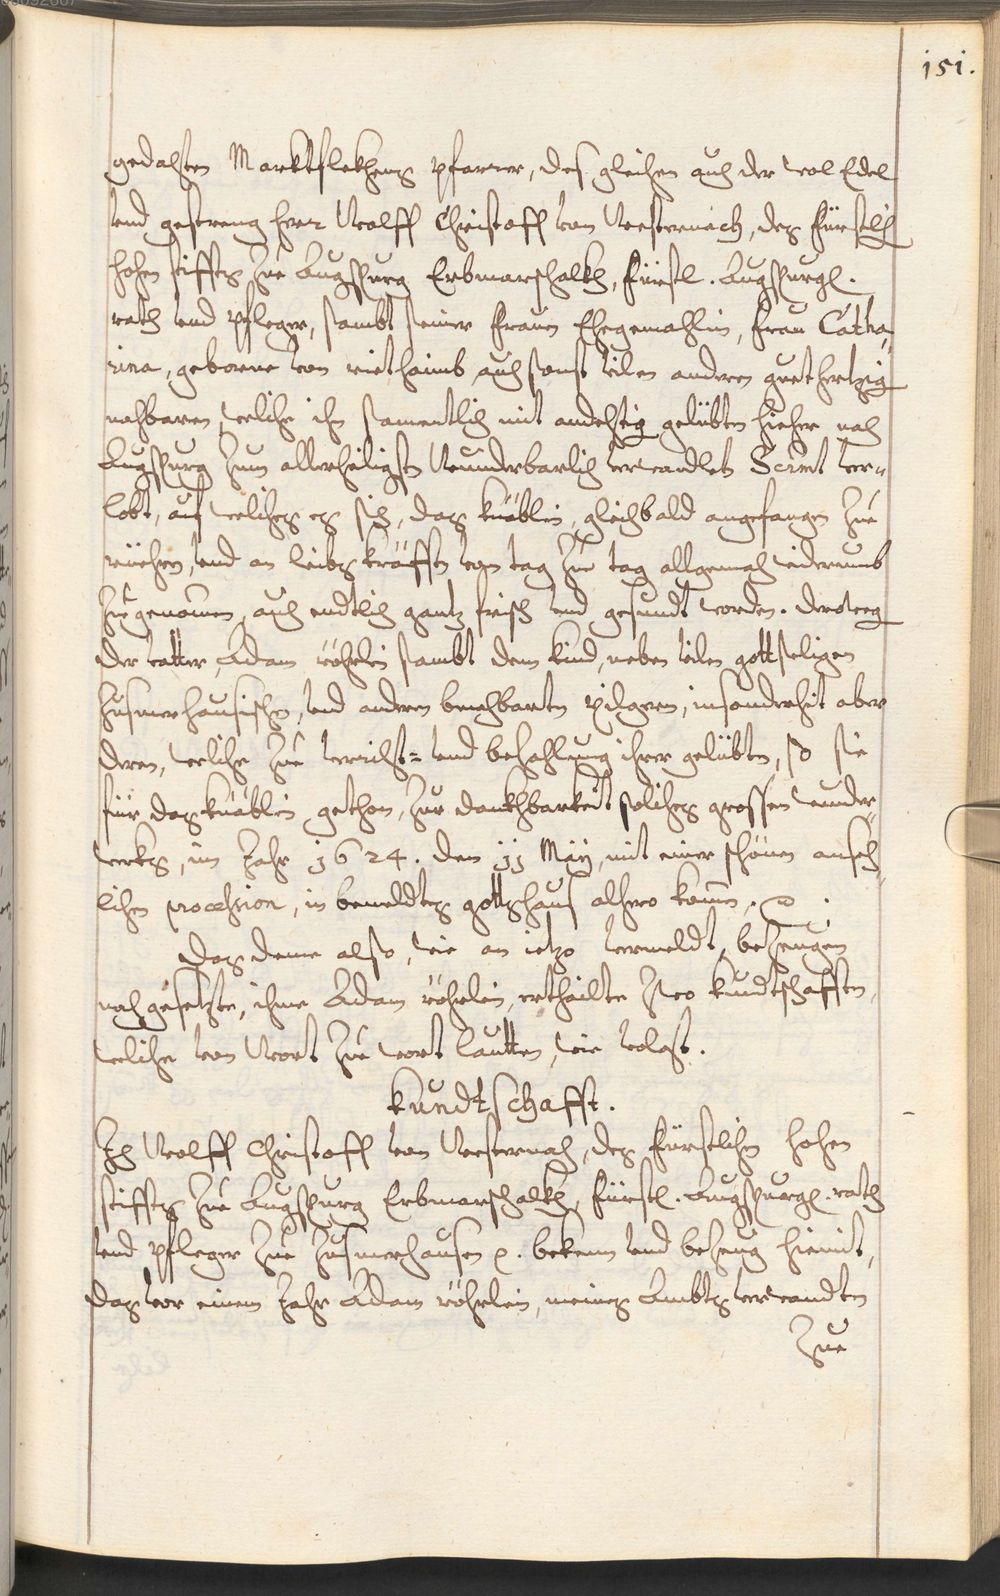 151.
gedahten Marktflekhens pfarrer, des gleichen auch der wol Edel
vnd gestreng herr Wolff Christoff von Westernach, des fürstlich
hohen stiffts zue Augspurg Erbmarschalkh, fürstl. Augspurgl.
rath vnd Pfleger, sambt seiner frauen Ehegemahlin, frau Catha,
rina, geborne von riethaimb auch sonst vilen anderen guethertzig
nahbaren, welche ihn samentlich mit andechtig gelübten hieher nach
Augspurg zum allerheiligsten Wunderbarlich verwandlet Scrmt ver=
lobt, auf weliches es sich, das knäblin, gleichbald angefangen zue
rüehen, vnd an leibs kräfften von tag zue tag allgemach widerumb
zuegenomen, auch endtlich gantz frisch vnd gesundt worden. deroweg
der vatter, Adam röhrlein sambt dem kind, neben vilen gottseligen
Zusmerhausischen, vnd anderen benachbarten pilgern, insonderheit aber
denen, welche zue verricht= vnd bezahlung ihrer gelübten, so sie
für das knäblin gethon, zur dankhbarkeit soliches grossen wunder,
werks, im Jahr 1624. den 11 May, mit einer schönen anseh,
lichen procession, in bemeldtes gottshaus alhero komen.
Das deme also, wie an ietzo vermeldt, bezeugen
nachgesetzte, ihme Adam röhrlein, ertheilte zwo kundtschafften,
welche von Wort zue wort lautten, wie volgt.
Kundtschafft.
Ich Wolff Christoff von Westernach, des fürstlichen hohen
stiffts zue Augspurg Erbmarschalkh, fürstl. Augspurgl. rath
vnd Pfleger zue Zusmerhausen etc. bekenn vnd bezeug hiemit,
das vor einem Jahr Adam röhrlein, meines Ambts verwandten
Zue